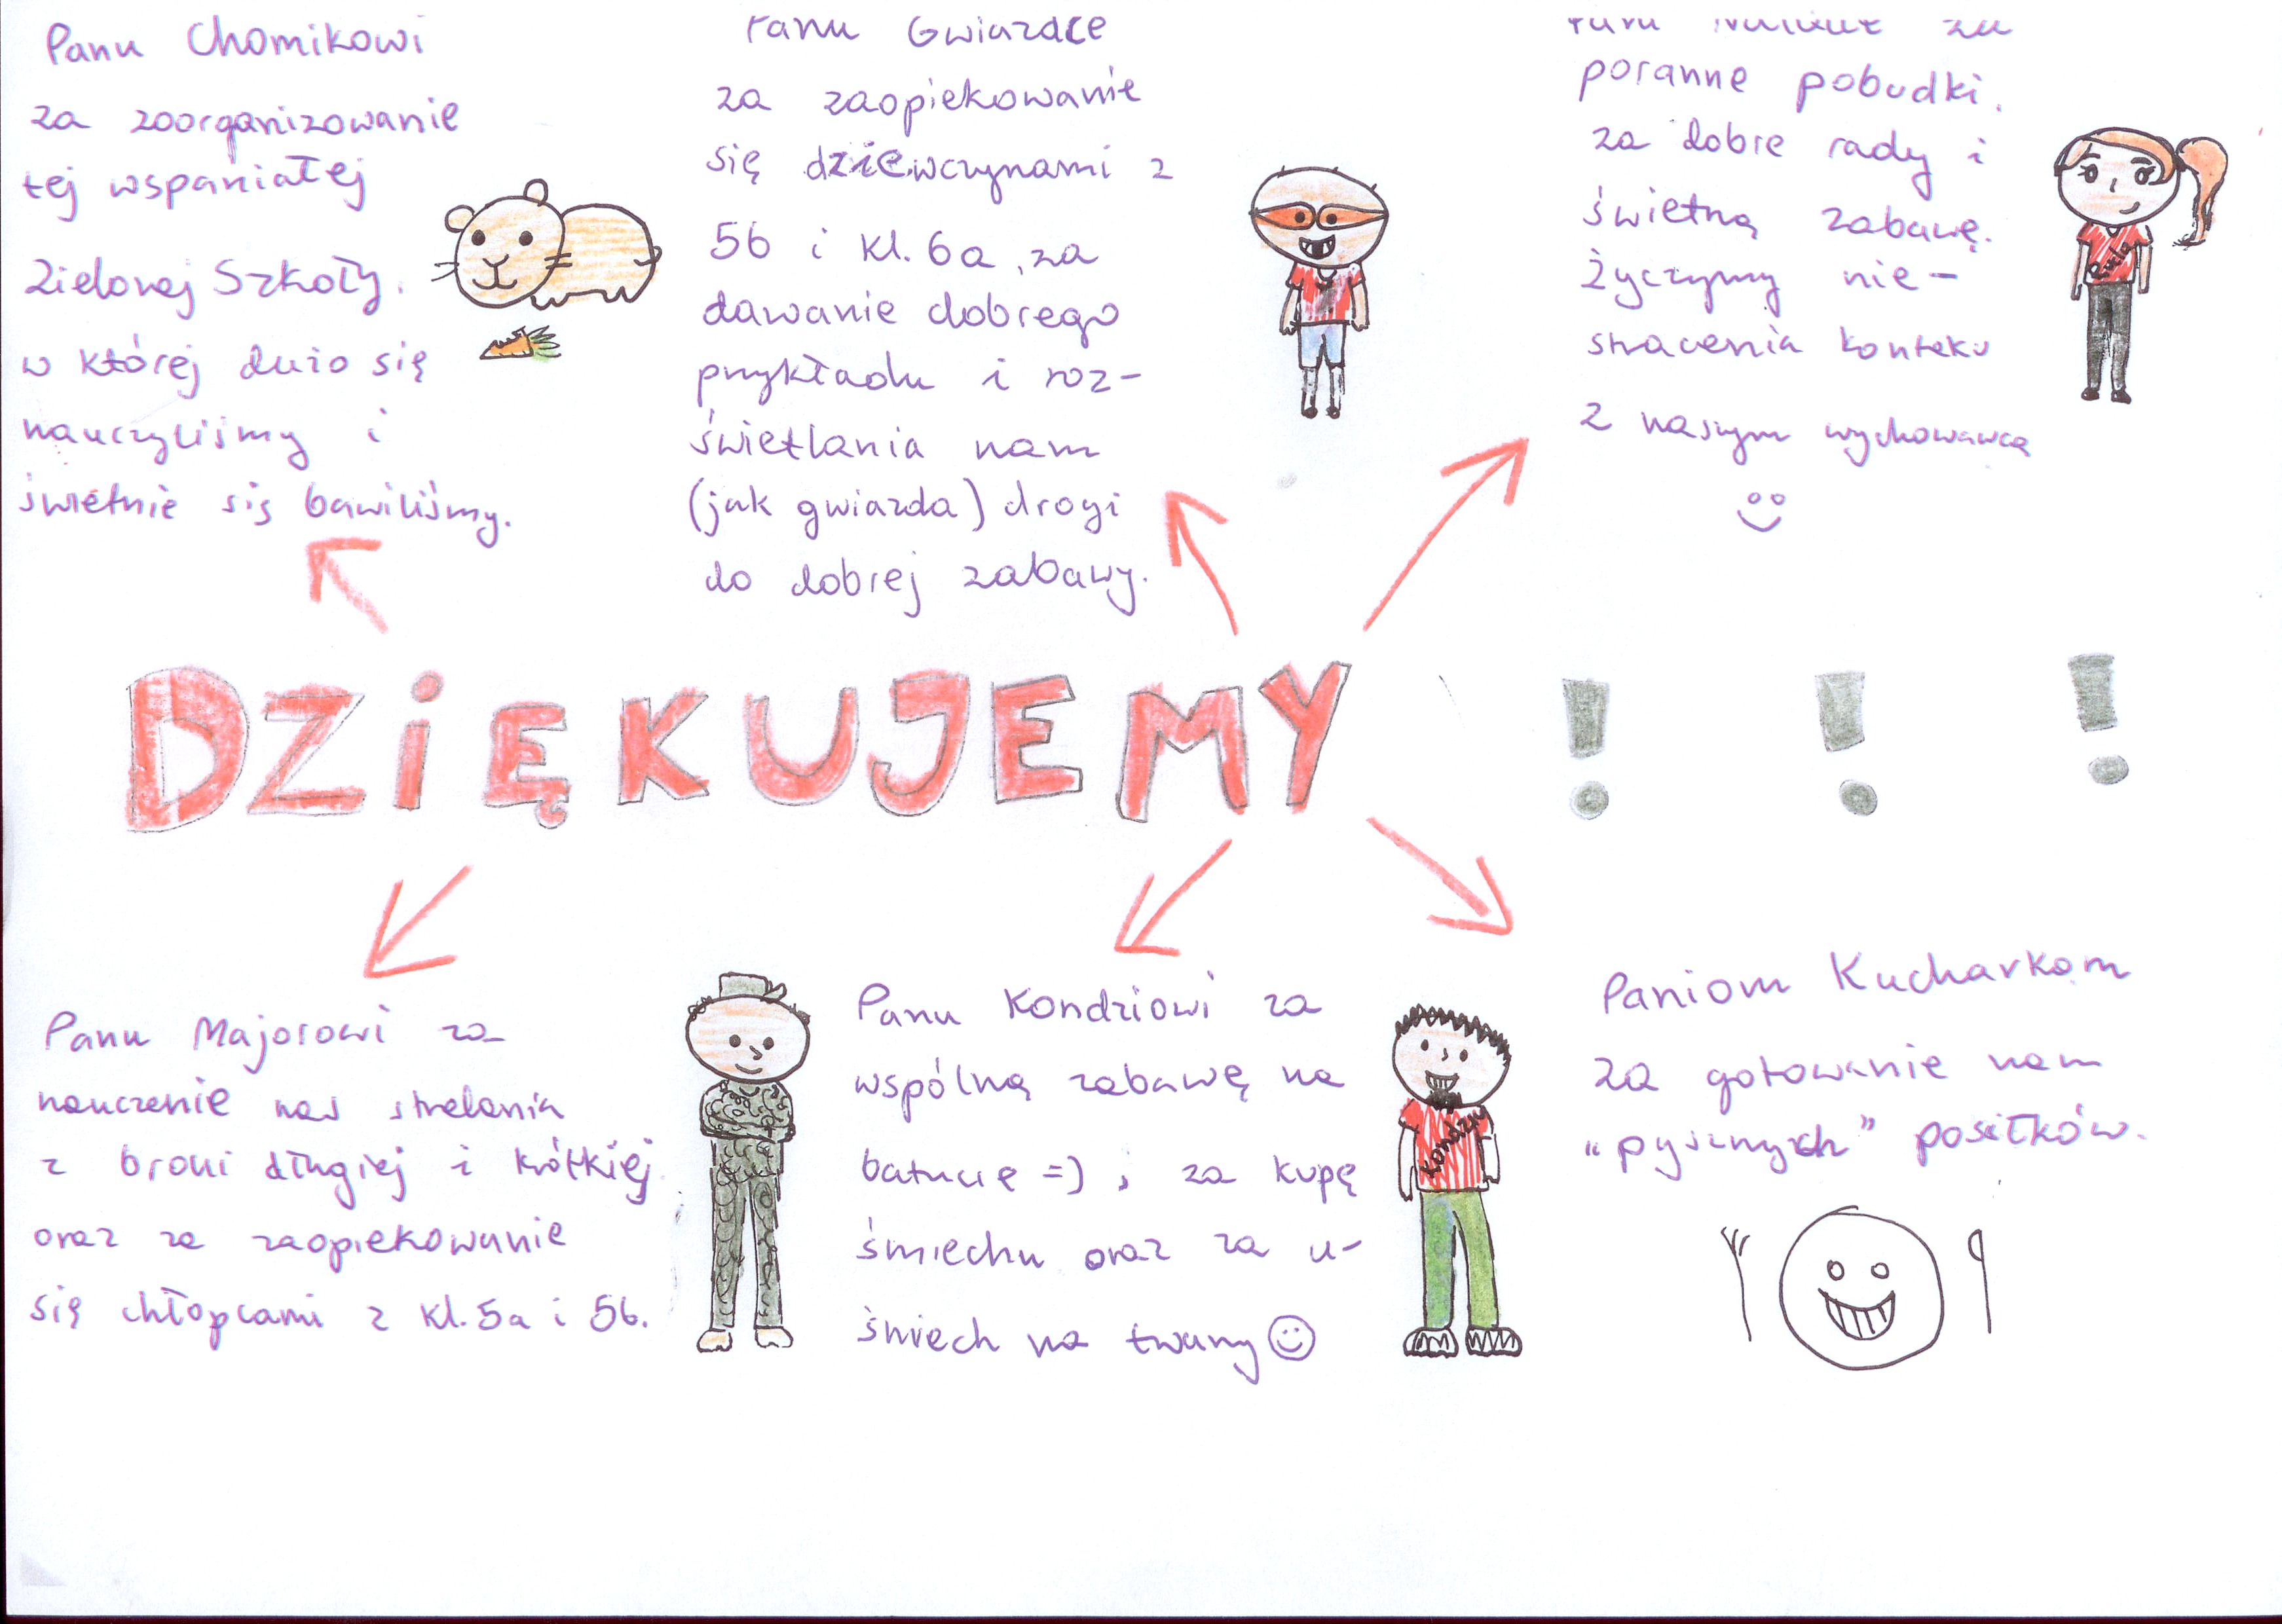 Panu Chomikowi
za zoorganizowanie
tej wspaniałej
Zielonej Szkoły.
w której dużo się
nauczyliśmy i
świetnie się bawiliśmy.
Panu Gwiazdce
za zaopiekowanie
się dziewczynami z
5b i kl. 6a, za
dawanie dobrego
przykładu i roz-
świetlania nam
(jak gwiazda) drogi
do dobrej zabawy.
za
poranne pobudki.
za dobre rady i
świetną zabawę.
życzymy nie-
stracenia kontaku
z naszym wychowawcą
DZIĘKUJEMY ! ! !
Panu Majorowi za
nauczenie nas strzelania
z broni długiej i krótkiej
oraz za zaopiekowanie
się chłopcami z kl. 5a i 5b.
Panu Kondziowi za
wspólną zabawę na
batucie =) , za kupę
śmiechu oraz za u-
śmiech na twarzy
Kondziu
Paniom Kucharkom
za gotowanie nam
"pysznych" posiłków.